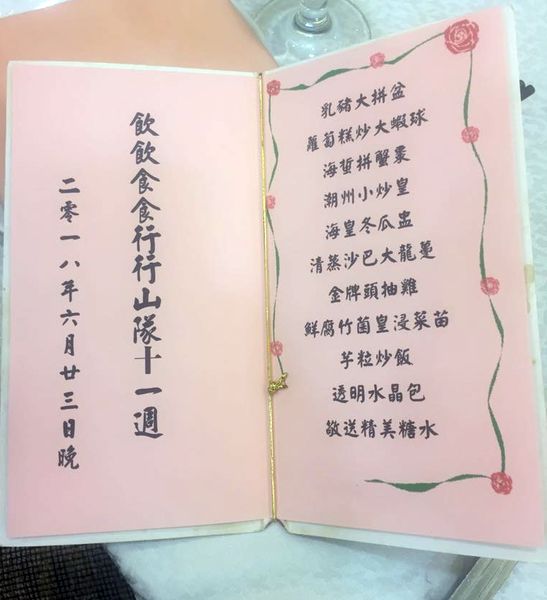 飲飲食食行行山隊十一週
二零一八年六月廿三日晚
乳豬大拼盆
蘿蔔糕炒大蝦球
海蜇拼蟹棗
潮州小炒皇
海皇冬瓜盅
清蒸沙巴大龍躉
金牌頭抽雞
鮮腐竹菌皇浸菜苗
芋粒炒飯
透明水晶包
敬送精美糖水